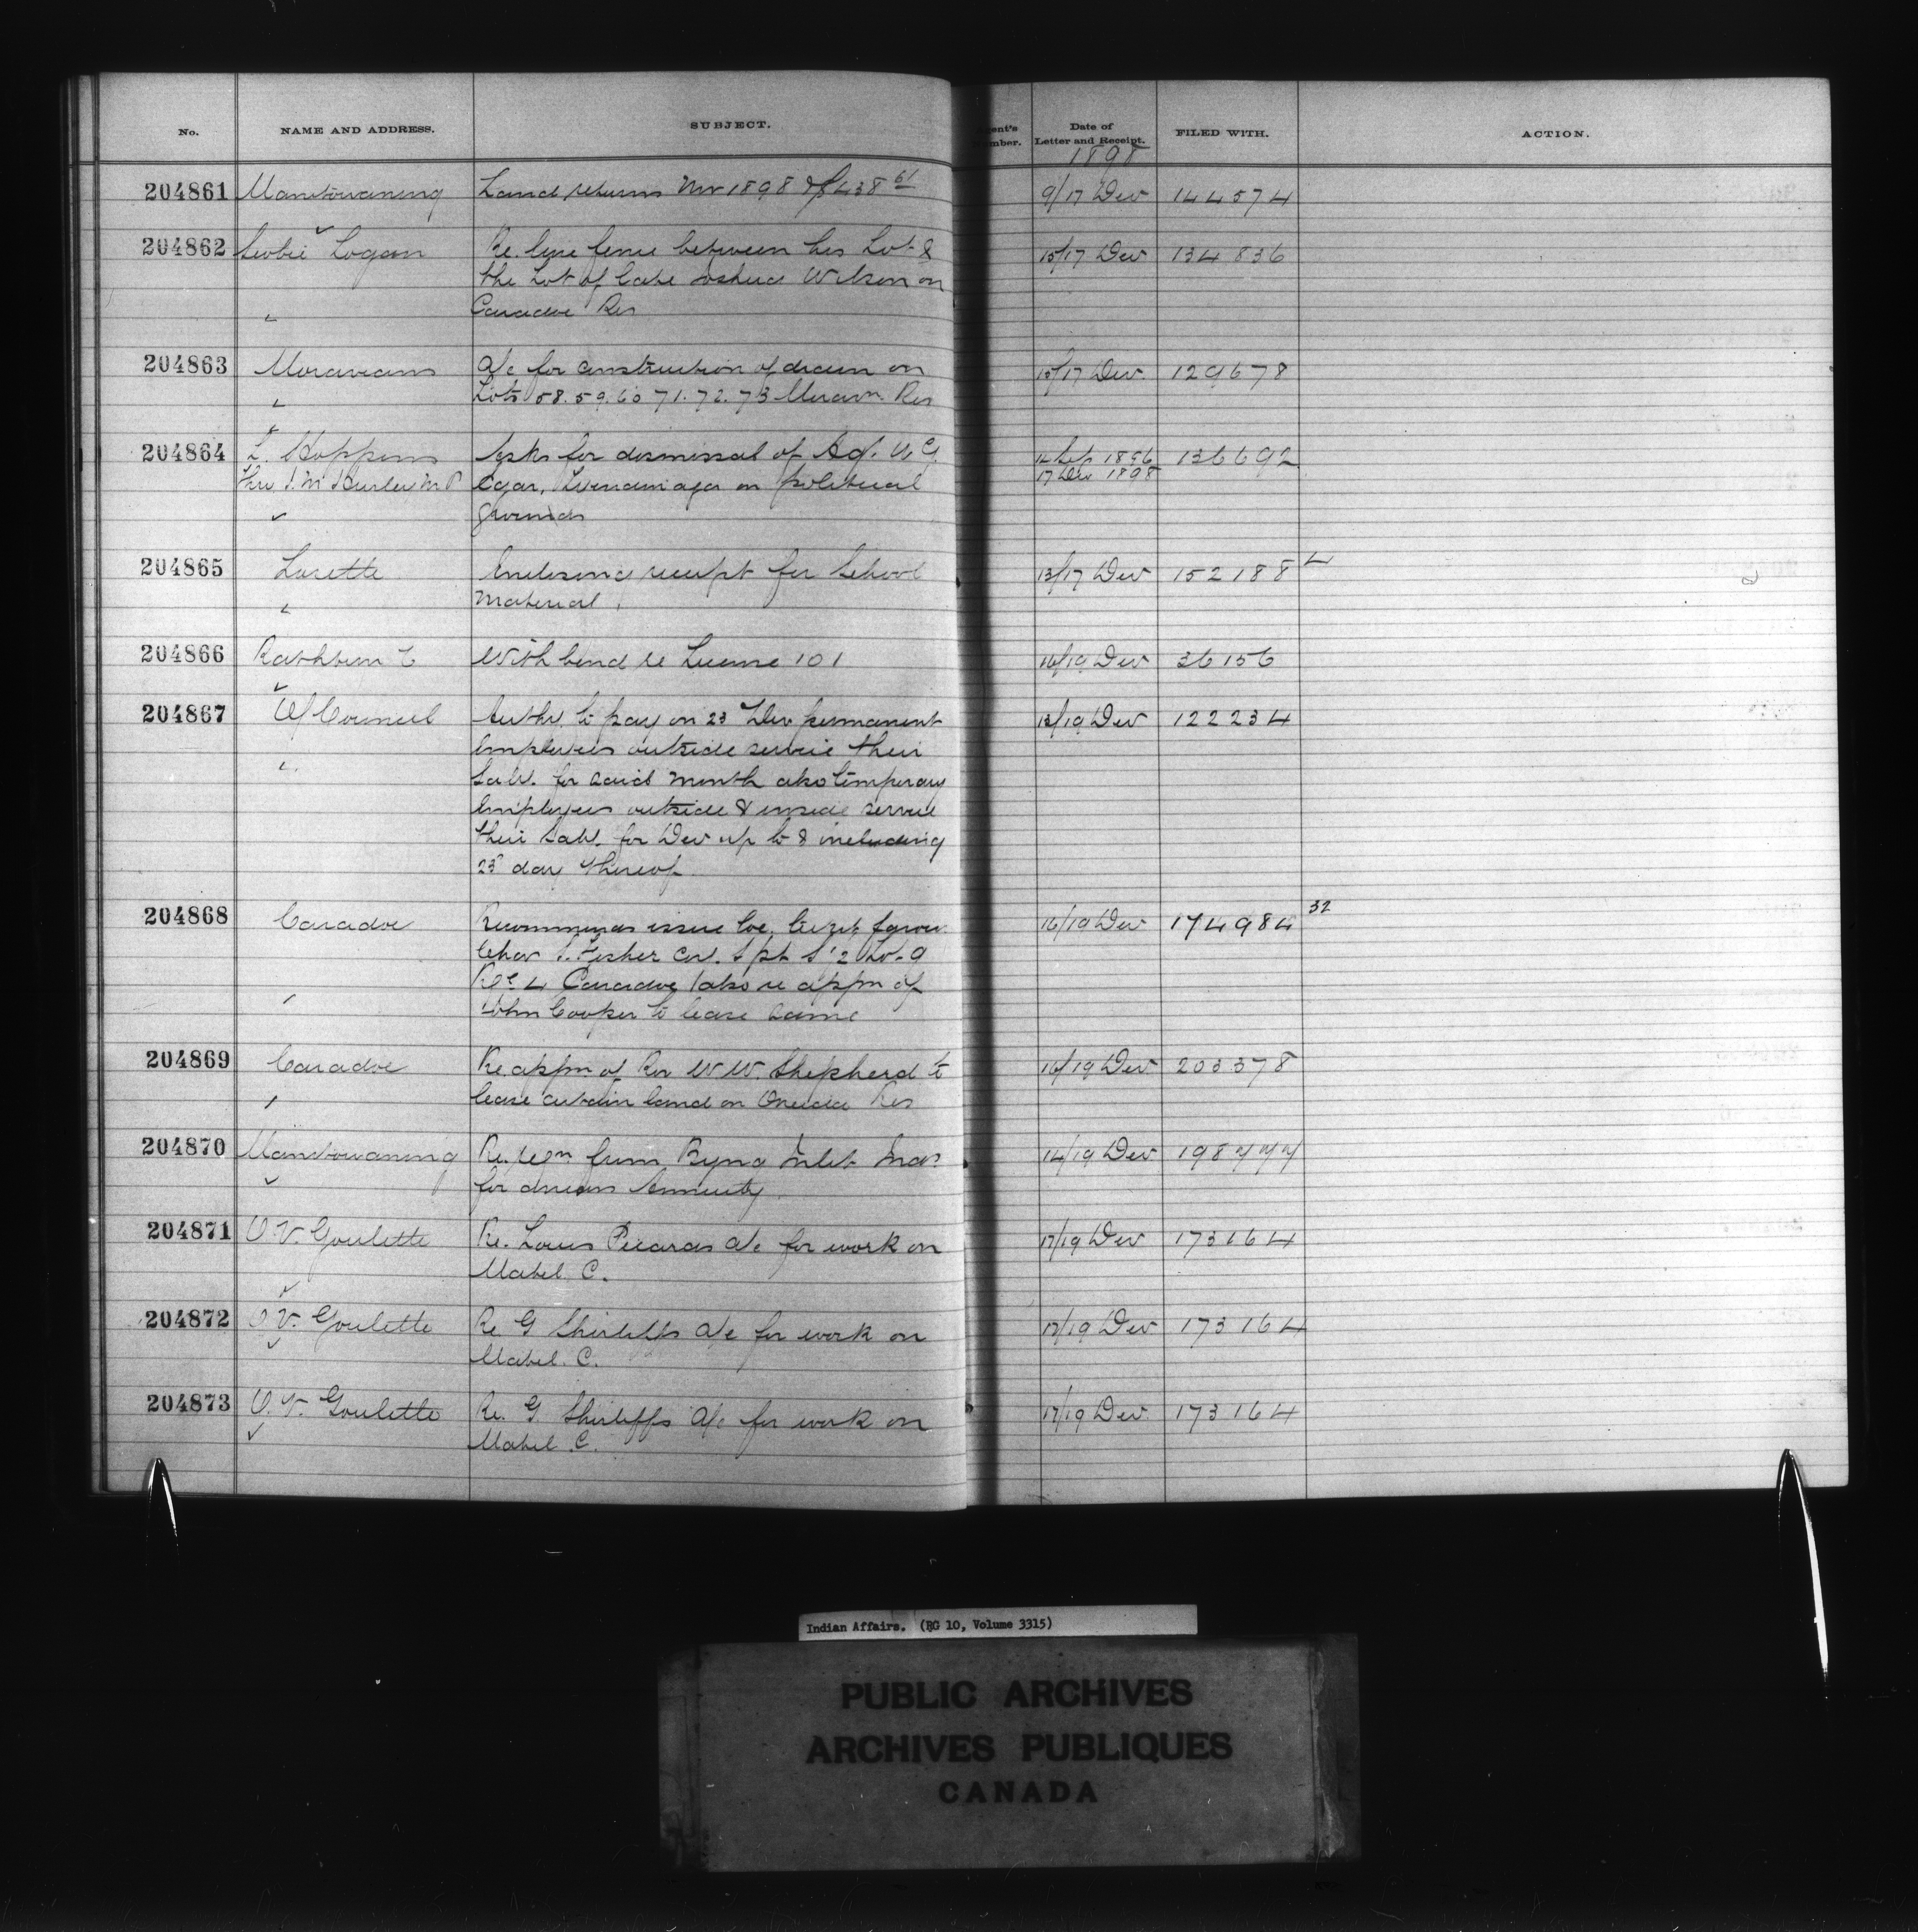 No. NAME AND ADDRESS. SUBJECT. Date of Letter and Receipt. FILED WITH. ACTION.
1898
204861 Manitowaning Land returns Nov 1898 438 61 9/17 Dec 144574
204862 Logan Re. line fence between his Lot & 15/17 Dec 134836
the Lot of late Joshua Wilson on
Caradoc Res
204863 Moravians a/c for construction of drain on 15/17 Dec. 129678
Lots 58. 59. 60 71. 72. 73 Res
204864 Asks for dismissal of Agt. 1896 136692
thro J. M. Hurley M.P on political 17 Dec 1898
grounds
204865 Lorette Enclosing receipt for School 13/17 Dec 152188
material
204866 Rathbun C With bond re License 101 16/19 Dec 36156
204867 O/Council Auth. to pay on 23 Dec permanent 13/19 Dec 122234
employees outside service their
Saly. for said month also temporary
employees outside & inside service
their Saly. for Dec up to & including
23 day thereof
204868 Caradoc Recommends issue loc. favour 16/19 Dec 174984 32
Chas Fisher S pt S 1/2 Lot 9
Caradoc also re appn of
John Cooper to lease same
204869 Caradoc Re. appn of Rev W W. Shepherd to 16/19 Dec 203378
lease certain land on Oneida Res
204870 Manitowaning Re. from Byng Inlet Inds 14/19 Dec 198777
for Annuity
204871 O V. Goulette Re. Louis Picards a/c for work on 17/19 Dec 173164
Mabel C.
204872 O V. Goulette Re G Shirleffs a/c for work on 17/19 Dec 173164
Mabel. C.
204873 O. V. Goulette Re. G Shirleffs a/c for work on 17/19 Dec 173164
Mabel C.
Indian Affairs. (RG 10, Volume 3315)
PUBLIC ARCHIVES
ARCHIVES PUBLIQUES
CANADA